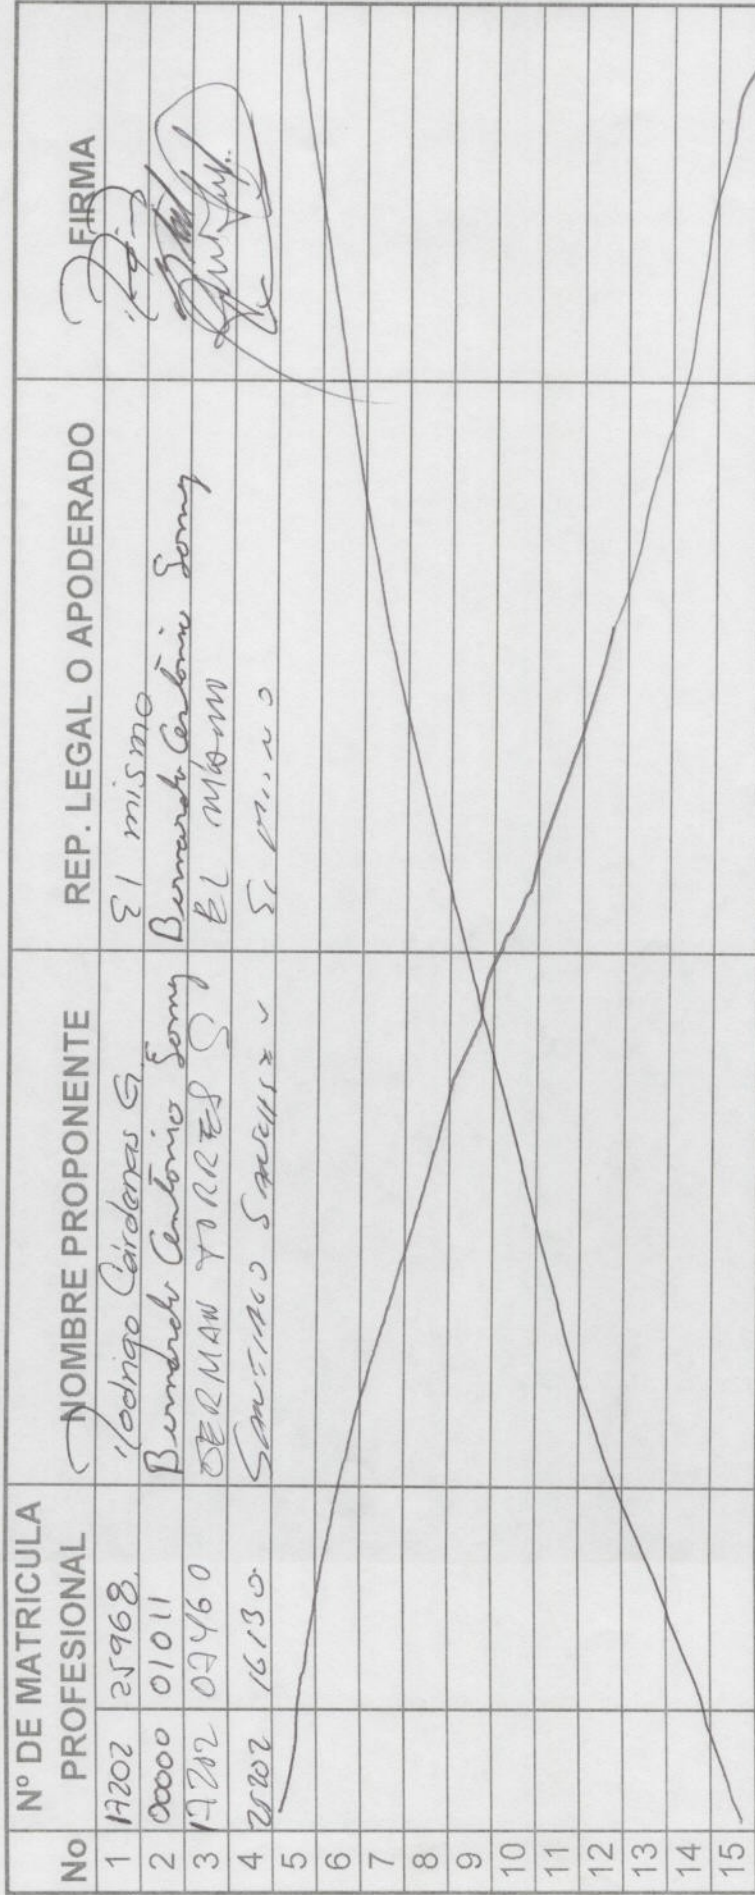 Nº DE MATRICULA
No PROFESIONAL NOMBRE PROPONENTE REP. LEGAL O APODERADO FIRMA
1 17202 25968 Rodrigo Cárdenas G. El mismo
2 00000 01011 Bernardo Antonio Bernardo Antonio
3 17202 07460 GERMAN TORRES S EL MISMO
4 16130
5
6
7
8
9
10
11
12
13
14
15